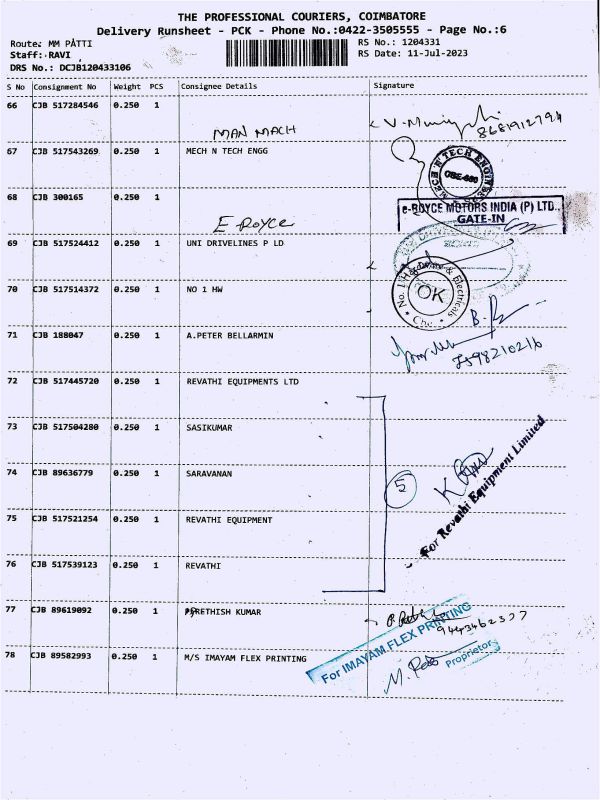 THE PROFESSIONAL COURIERS, COIMBATORE
Delivery Runsheet - PCK - Phone No.:0422-3505555 - Page No.:6
Route: MM PATTI
RS No.: 1204331
Staff: RAVI
RS Date: 11-Jul-2023
DRS No.: DCJB120433106
S No Consignment No Weight PCS Consignee Details Signature
66 CJB 517284546 0.250 1
MAN MACH
8681912794
67 CJB 517543269 0.250 1 MECH N TECH ENGG
MECH N TECH ENGINEERS
68 CJB 300165 0.250 1
E Royce
e-ROYCE MOTORS INDIA (P) LTD.,
GATE-IN
69 CJB 517524412 0.250 1 UNI DRIVELINES P LD
70 CJB 517514372 0.250 1 NO 1 HW
No. 1 & Electricals
OK
71 CJB 188047 0.250 1 A.PETER BELLARMIN
72 CJB 517445720 0.250 1 REVATHI EQUIPMENTS LTD
73 CJB 517504280 0.250 1 SASIKUMAR
74 CJB 89636779 0.250 1 SARAVANAN
5
For Revathi Equipment Limited
75 CJB 517521254 0.250 1 REVATHI EQUIPMENT
76 CJB 517539123 0.250 1 REVATHI
77 CJB 89619092 0.250 1 PRETHISH KUMAR
78 CJB 89582993 0.250 1 M/S IMAYAM FLEX PRINTING
For IMAYAM FLEX PRINTING
Proprietor